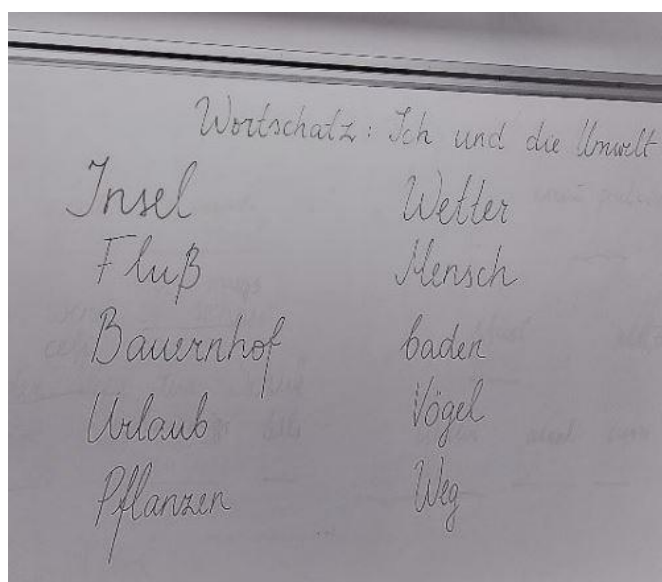 Wortschatz: Ich und die Umwelt
Insel
Fluß
Bauernhof
Urlaub
Pflanzen
Wetter
Mensch
baden
Vögel
Weg